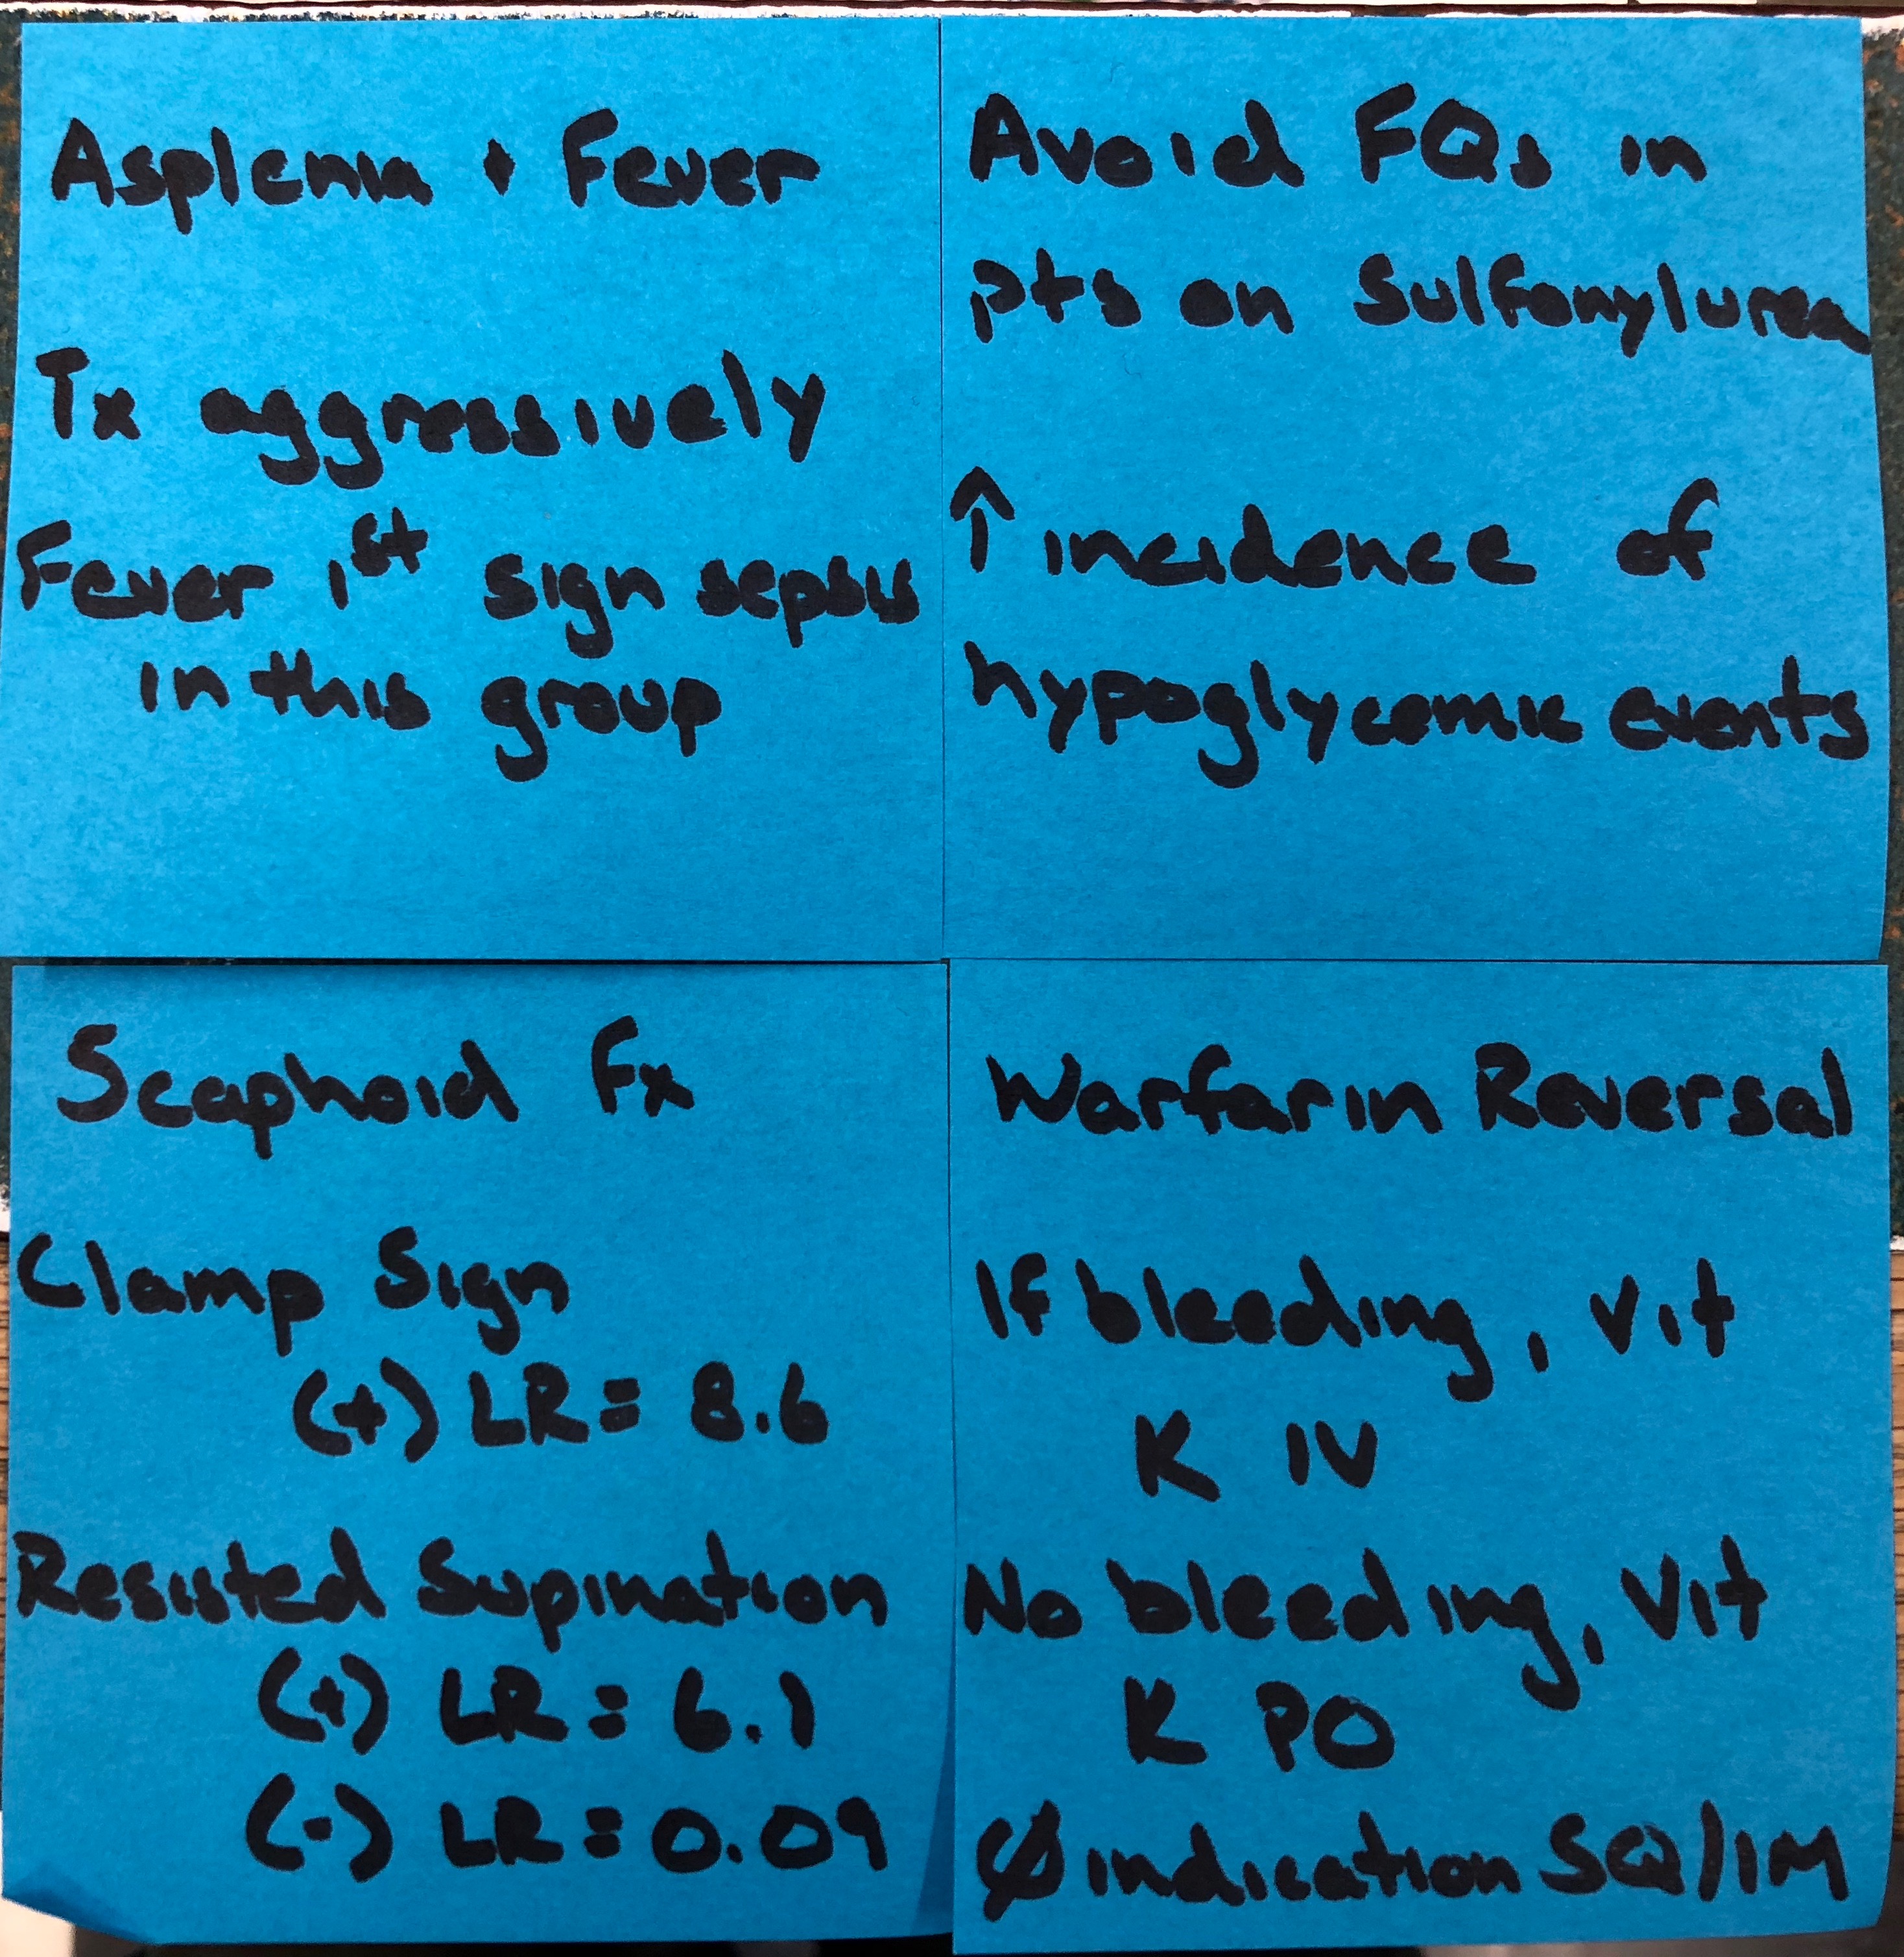 Asplenia + Fever
Tx aggressively
Fever 1st sign sepsis
in this group
Avoid FQs in
pts on Sulfonylurea
↑ incidence of
hypoglycemic events
Scaphoid Fx
Clamp Sign
(+) LR = 8.6
Resisted Supination
(+) LR = 6.1
(-) LR = 0.09
Warfarin Reversal
If bleeding, Vit
K IV
No bleeding, Vit
K PO
Ø indication SQ/IM